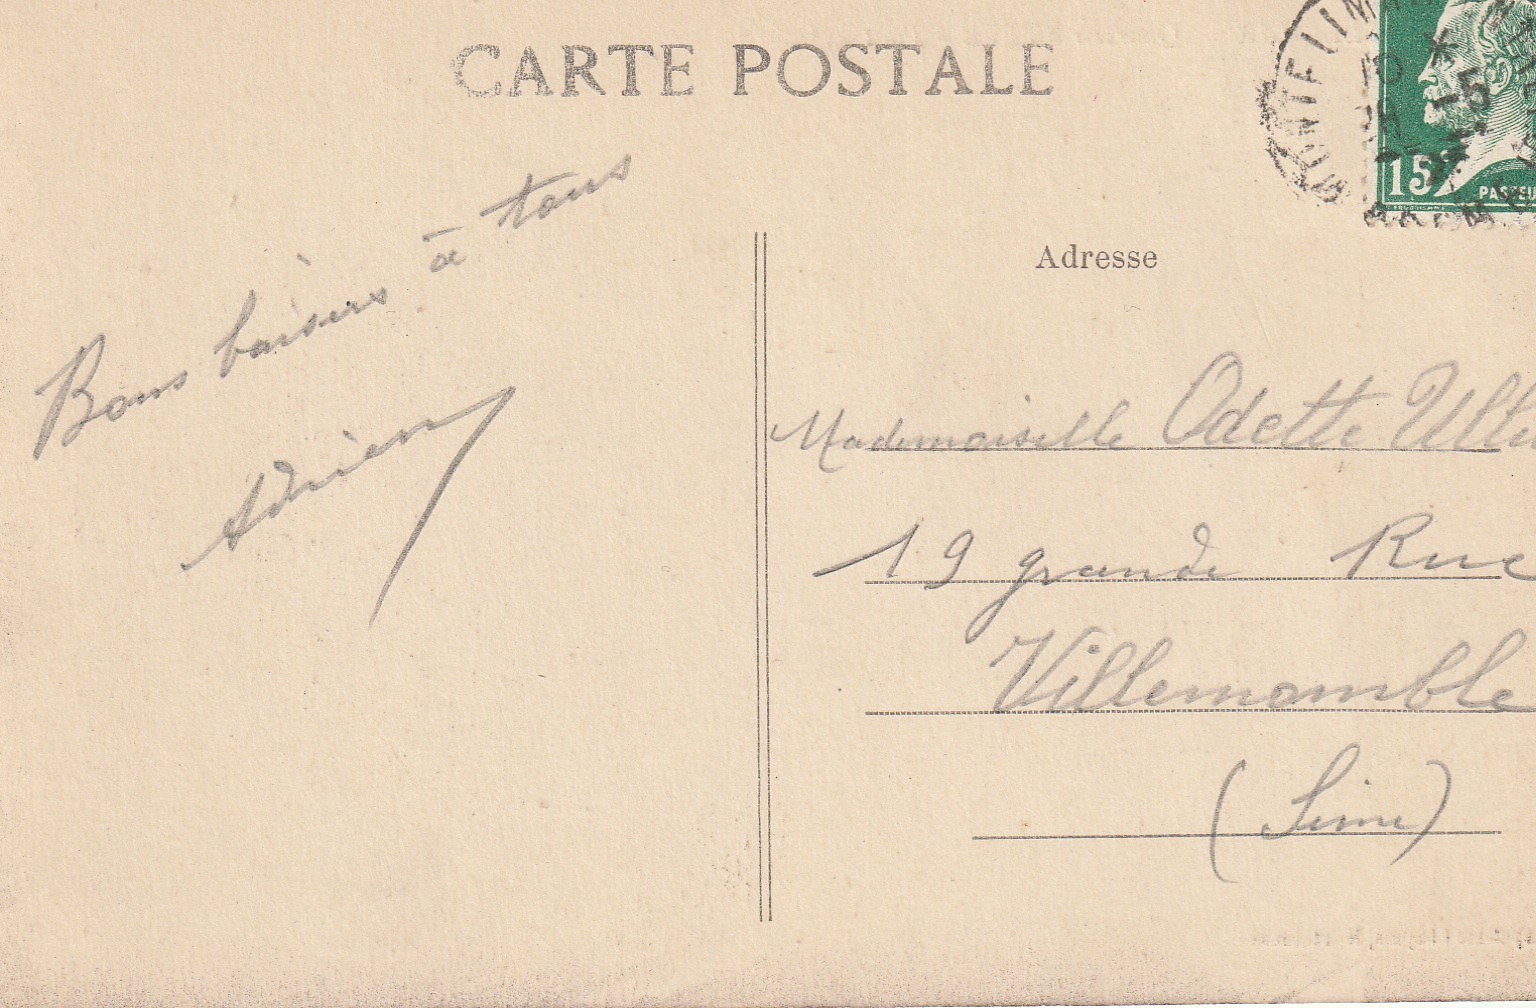 CARTE POSTALE
MONTELIMAR
15
PASTEU
Bons baisers à tous
Adrien
Adresse
Mademoiselle Odette
19 grande Rue
Villemomble
(Seine)